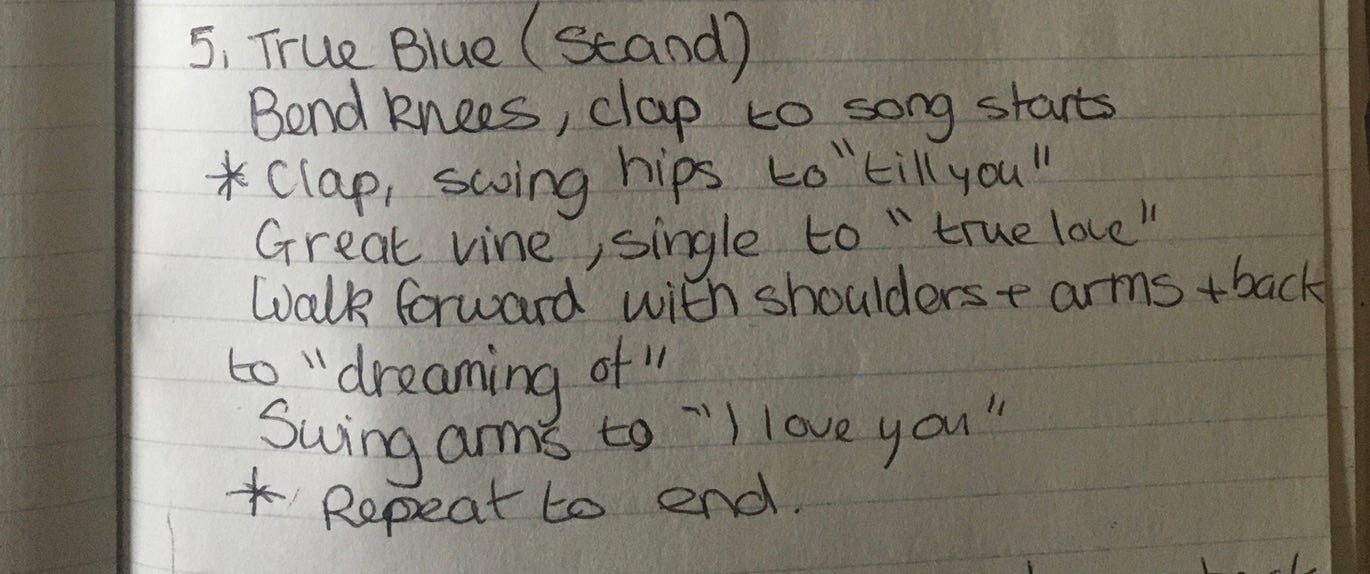 5. True Blue (Stand)
Bend knees, clap to song starts
* Clap, swing hips to "till you"
Great vine, single to "true love"
Walk forward with shoulders + arms + back
to "dreaming of"
Swing arms to "I love you"
* Repeat to end.